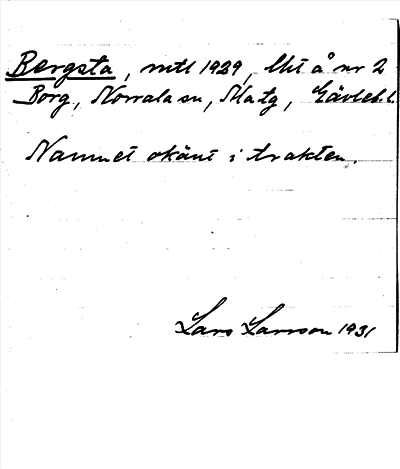 Bergsta, mtl 1929, lht å nr 2
Borg, Norrala sn, Hatg, Gävleb. l.
Namnet okänt i trakten.
Lars Larsson 1931